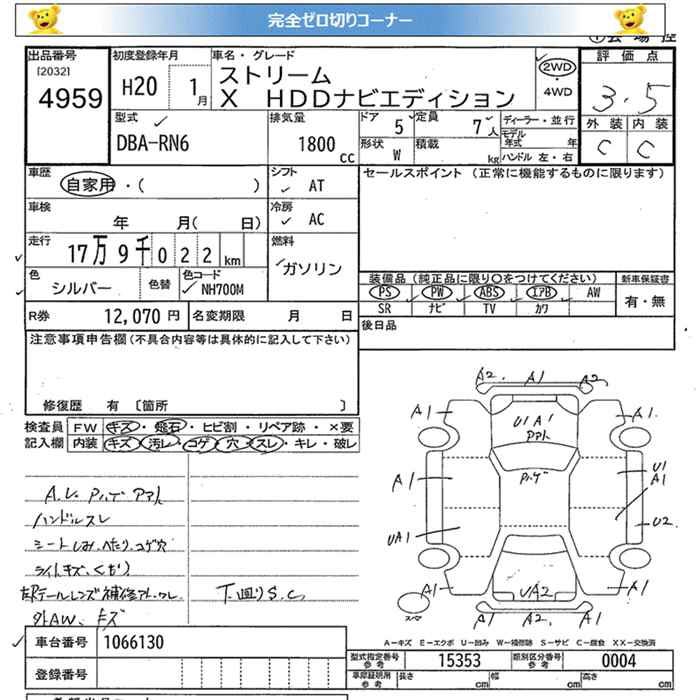 完全ゼロ切りコーナー
出品番号 初度登録年月 車名・グレード 評価点
[2032]
4959 H20 1月 ストリーム
X HDDナビエディション
2WD・4WD
3.5
型式 排気量 ドア 5 定員 7人 ディーラー・並行 外装 内装
DBA-RN6 1800 CC 形状 W 積載 kg モデル年式 年 C C
ハンドル 左・右
車歴 シフト セールスポイント (正常に機能するものに限ります)
自家用・( ) AT
車検 冷房
年 月( 日) AC
走行 燃料
17万9千022km ガソリン
色 色替 色コード
シルバー NH700M
装備品 (純正品に限り○をつけてください) 新車保証書
PS PW ABS IアB AW 有・無
SR ナビ TV カワ
R券 12,070 円 名変期限 月 日 後日品
注意事項申告欄(不具合内容等は具体的に記入して下さい)
修復歴 有 〔箇所 〕
検査員 FW キズ・飛石・ヒビ割・リペア跡・×要
記入欄 内装 キズ・汚レ・コゲ・穴・スレ・キレ・破レ
ハンドルスレ
シートしみ、へたり、コゲ穴
ライトキズ、くもり
外AW、キズ
下廻りS.C
A2 A1 A2
A1 A1
U1 A1
Pハゲ
A1 U1 A1
UA1 U2
A1 UA2 A1
A1 A2 A1
A-キズ E-エクボ U-凹み W-補修跡 S-サビ C-腐食 XX-交換済
車台番号 1066130
型式指定番号 参考 15353 類別区分番号 参考 0004
登録番号
車庫証明用 参考 長さ cm 幅 cm 高さ cm